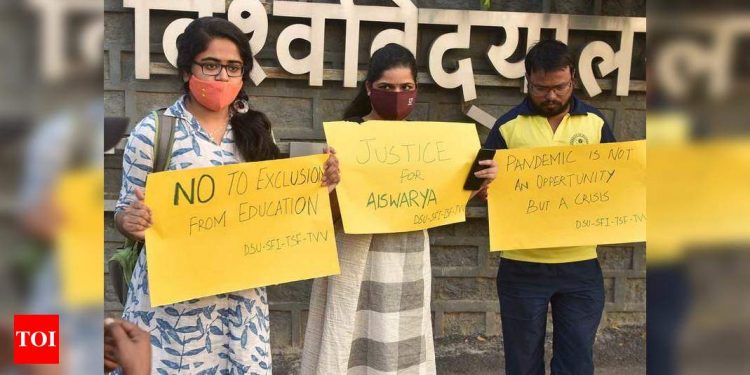 विश्वविद्यालय
NO TO EXCLUSION
FROM EDUCATION
DSU-SFI-TSF-TVV
JUSTICE
FOR
AISWARYA
DSU-SFI-TSF-TVV
PANDEMIC IS NOT
AN OPPERTUNITY
BUT A CRISIS
DSU-SFI-TSF-TVV
TOI